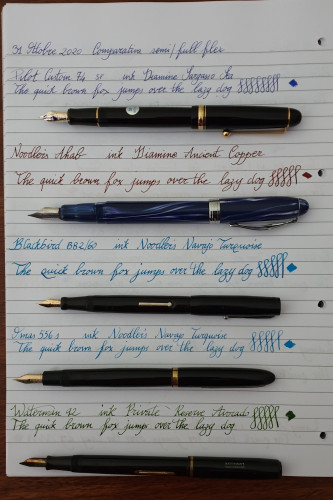 31 Ottobre 2020 Comparation semi/full flex
Pilot Custom 74 SF ink Diamine Sargasso Sea
The quick brown fox jumps over the lazy dog
Noodler's Ahab ink Diamine Ancient Copper
The quick brown fox jumps over the lazy dog
Blackbird BB2/60 ink Noodler's Navajo Turquoise
The quick brown fox jumps over the lazy dog
Omas 556 s ink Noodler's Navajo Turquoise
The quick brown fox jumps over the lazy dog
Waterman 12 ink Private Reserve Avocado
The quick brown fox jumps over the lazy dog